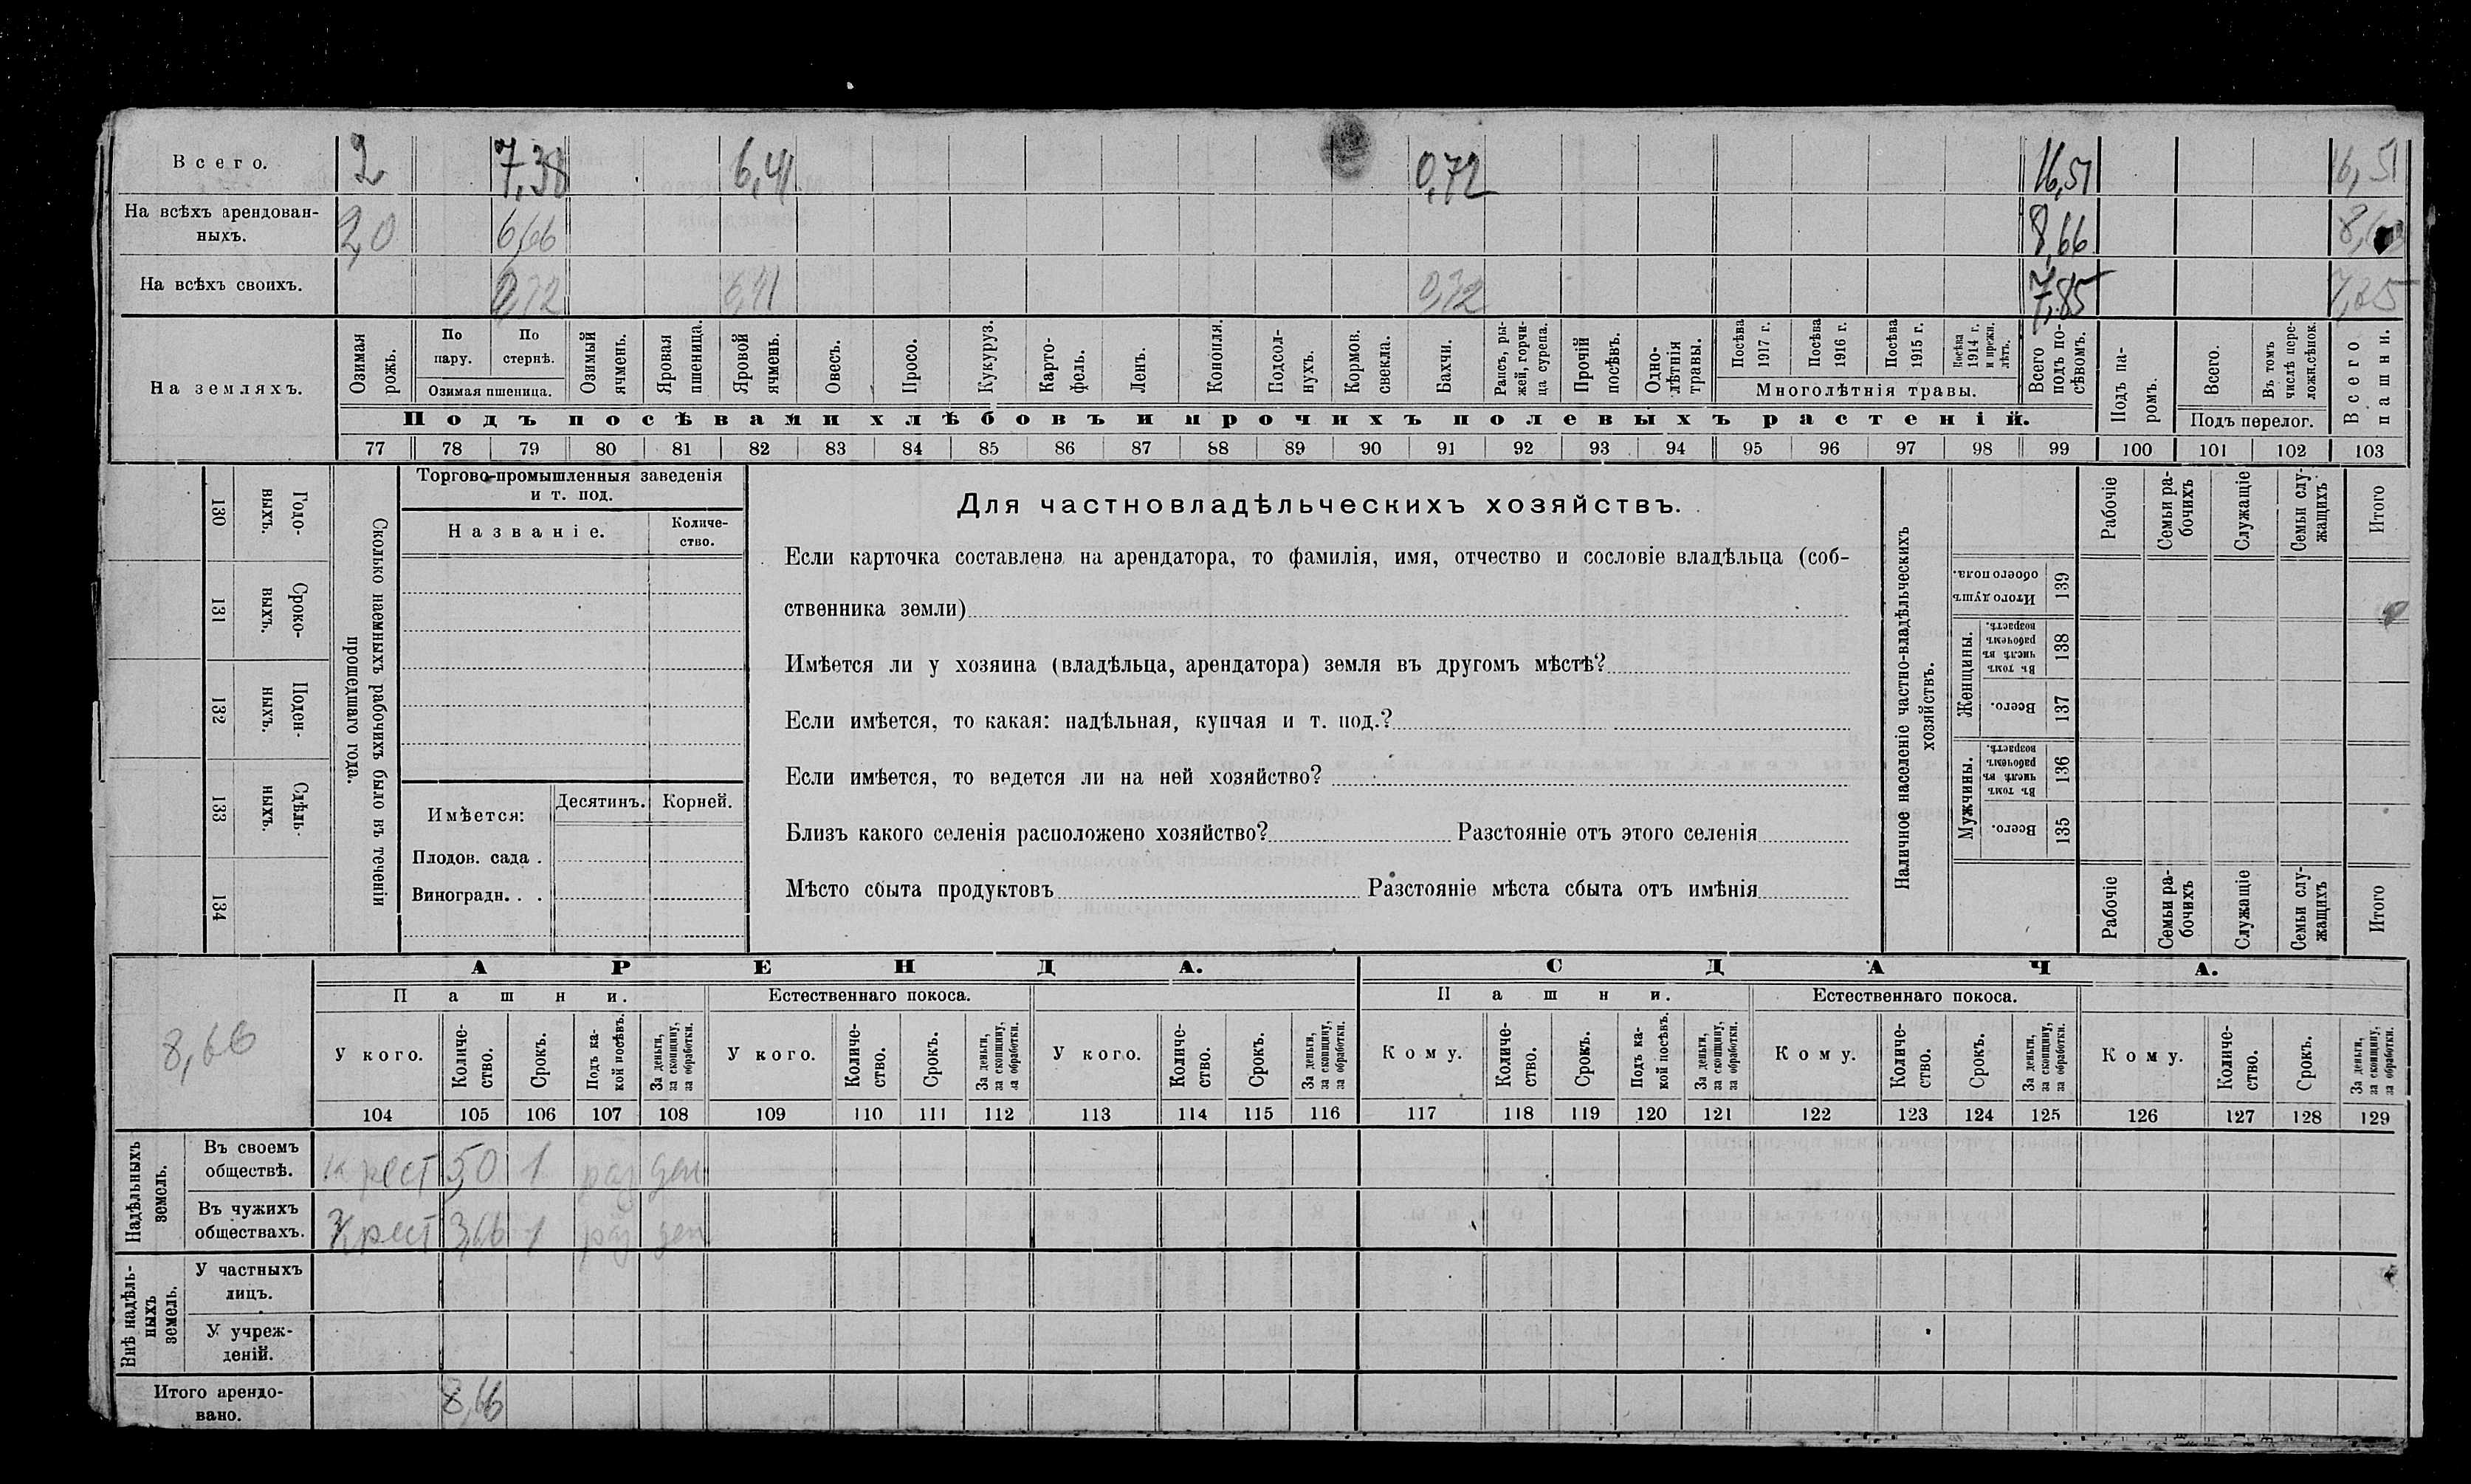 Всего. 2 7,38 6,41 0,72 16,51 16,51
На всѣхъ арендован-
ныхъ. 2,0 6,66 8,66
На всѣхъ своихъ. 0,72 6,41 0,72 7,85 7,85
На земляхъ.
Озимая рожь.
По пару.
По стернѣ.
Озимая пшеница.
Озимый ячмень.
Яровая пшеница.
Яровой ячмень.
Овесъ.
Просо.
Кукуруз.
Карто-
фель.
Ленъ.
Конопля.
Подсол-
нухъ.
Кормов. свекла.
Бахчи.
Рапсъ, ры-
жей, горчи-
ца сурепа.
Прочій посѣвъ.
Одно-
лѣтнія травы.
Посѣва 1917 г.
Посѣва 1916 г.
Посѣва 1915 г.
Посѣва 1914 г. и прежн. лѣтъ.
Многолѣтнія травы.
Всего подъ по-
сѣвомъ.
Подъ па-
ромъ.
Всего.
Въ томъ числѣ пере-
ложн.сѣнок.
Подъ перелог.
Всего пашни.
Подъ посѣвами хлѣбовъ и прочихъ полевыхъ растеній.
77 78 79 80 81 82 83 84 85 86 87 88 89 90 91 92 93 94 95 96 97 98 99 100 101 102 103
Годо-
выхъ.
130
Сроко-
выхъ.
131
Поден-
ныхъ.
132
Сдѣль-
ныхъ.
133
134
Сколько наемныхъ рабочихъ было въ теченіи
прошедшаго года.
Торгово-промышленныя заведенія
и т. под.
Названіе.
Количе-
ство.
Имѣется:
Десятинъ. Корней.
Плодов. сада .
Виноградн. . .
Для частновладѣльческихъ хозяйствъ.
Если карточка составлена на арендатора, то фамилія, имя, отчество и сословіе владѣльца (соб-
ственника земли)
Имѣется ли у хозяина (владѣльца, арендатора) земля въ другомъ мѣстѣ?
Если имѣется, то какая: надѣльная, купчая и т. под.?
Если имѣется, то ведется ли на ней хозяйство?
Близъ какого селенія расположено хозяйство? Разстояніе отъ этого селенія
Мѣсто сбыта продуктовъ Разстояніе мѣста сбыта отъ имѣнія
Наличное населеніе частно-владѣльческихъ
хозяйствъ.
Рабочіе
Семьи ра-
бочихъ
Служащіе
Семьи слу-
жащихъ
Итого
Итого душъ обоего пола.
139
Женщины.
Въ томъ числѣ въ рабочемъ возрастѣ.
138
Всего.
137
Мужчины.
Въ томъ числѣ въ рабочемъ возрастѣ.
136
Всего.
135
Рабочіе
Семьи ра-
бочихъ
Служащіе
Семьи слу-
жащихъ
Итого
8,66
АРЕНДА.
СДАЧА.
Пашни.
Естественнаго покоса.
Пашни.
Естественнаго покоса.
У кого.
Количе-
ство.
Срокъ.
Подъ ка-
кой посѣвъ.
За деньги, за скопщину, за обработки.
У кого.
Количе-
ство.
Срокъ.
За деньги, за скопщину, за обработки.
У кого.
Количе-
ство.
Срокъ.
За деньги, за скопщину, за обработки.
Кому.
Количе-
ство.
Срокъ.
Подъ ка-
кой посѣвъ.
За деньги, за скопщину, за обработки.
Кому.
Количе-
ство.
Срокъ.
За деньги, за скопщину, за обработки.
Кому.
Количе-
ство.
Срокъ.
За деньги, за скопщину, за обработки.
104 105 106 107 108 109 110 111 112 113 114 115 116 117 118 119 120 121 122 123 124 125 126 127 128 129
Надѣльныхъ земель.
Въ своемъ
обществѣ. крест 5,0 1 раз ден
Въ чужихъ
обществахъ. крест 3,66 1 раз ден
Внѣ надѣль-
ныхъ земель.
У частныхъ
лицъ.
У учреж-
деній.
Итого арендо-
вано. 8,66